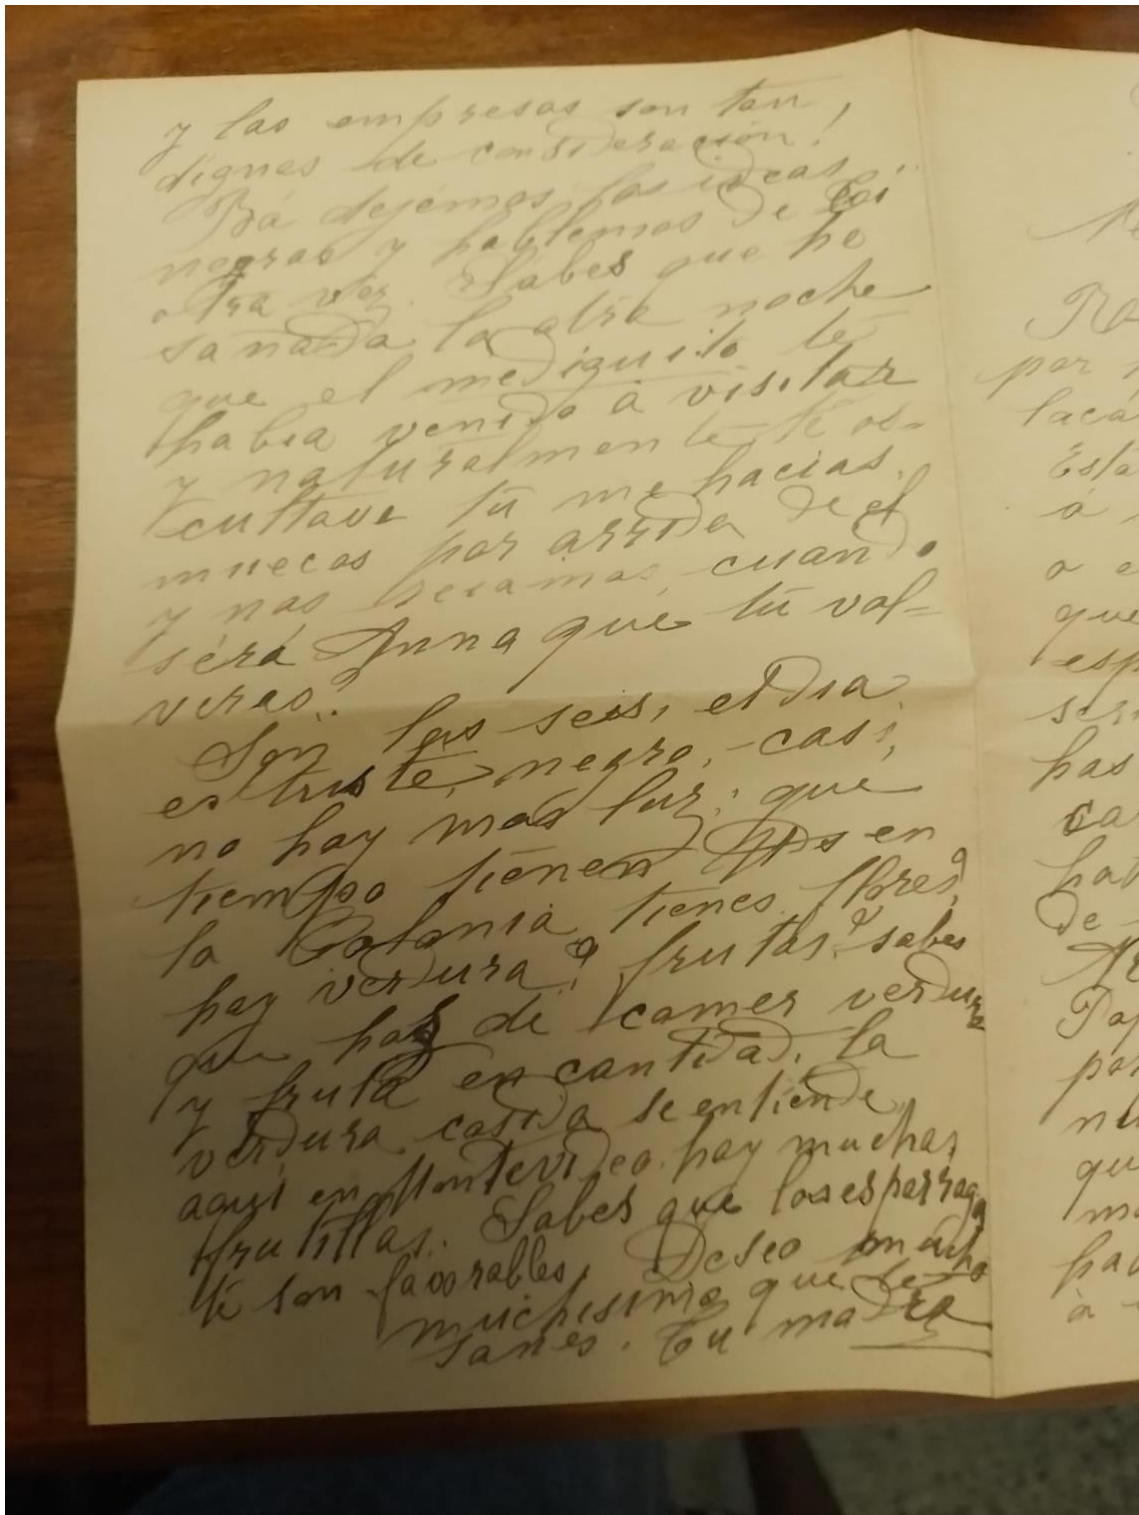 y las empresas son tan,
dignas de consideración!
Bá dejémos las ideas,
negras y hablemos de
otra vez. Sabes que he
sañada la otra noche
que el mediquito té
habia venido á visitar
y naturalmente té os=
cultava tú me hacias,
muecas por arriba de el
y nos reiamos, cuando
será Anna que tú vol=
veras?
Son las seis, el dia
es triste, negro, casi,
no hay mas luz; que
tiempo tienen Uds en
la Colonia tienes flores?
hay verdura? frutas? sabes
que has de comer verdura
y fruta en cantidad, la
verdura cosida se entiende,
aqui en Montevideo hay muchas,
frutillas. Sabes que los esparragos
té son favorables, Deseo mucho
muchisimo que te
sanes. Tu madre
por
Está
á
que
has
de
por
qui
á